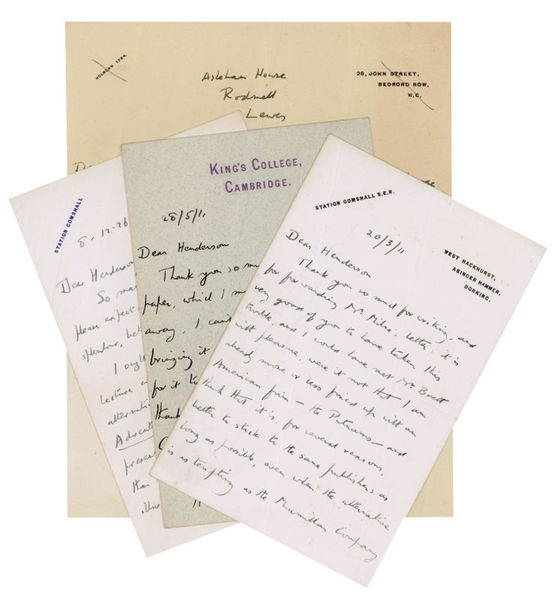 HOLBORN 1724.
28, JOHN STREET,
BEDFORD ROW,
W.C.
Asheham House
Rodmell
Lewes
STATION GOMSHALL
8.12.26
Dear Henderson
So
Please expect
splendour,
I ought
Lecture
alternative
Advent
present
than
KING'S COLLEGE,
CAMBRIDGE.
28/5/11
Dear Henderson
Thank you so mu
paper, which I
away. I can't
bringing it
for it to
thank
STATION GOMSHALL S.E.R.
WEST HACKHURST,
ABINGER HAMMER,
DORKING.
20/3/11
Dear Henderson
Thank you so much for writing, and
for forwarding Mr Milne's letter, it is
very good of you to have taken this
trouble and I would have met Mr Brett
with pleasure, were it not that I am
already more or less fixed up with an
American firm — the Putnams — and
think that it is, for several reasons,
better to stick to the same publishers as
long as possible, even when the alternative
is as tempting as the Macmillan Company